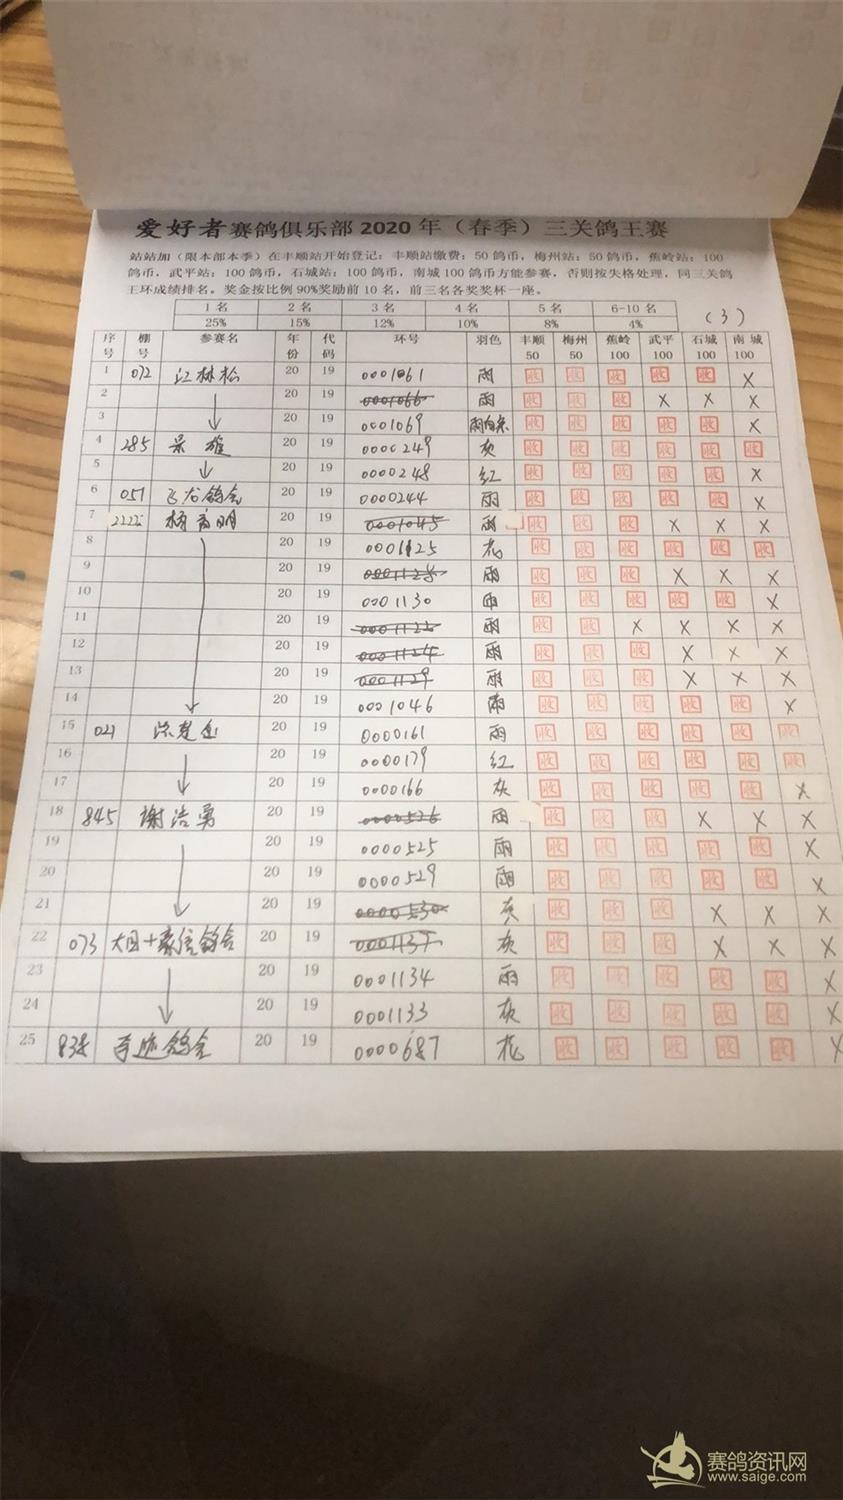 爱好者赛鸽俱乐部 2020 年（春季）三关鸽王赛
站站加（限本部本季）在丰顺站开始登记：丰顺站缴费：50 鸽币，梅州站：50 鸽币，蕉岭站：100
鸽币，武平站：100 鸽币，石城站：100 鸽币，南城 100 鸽币方能参赛，否则按失格处理，同三关鸽
王环成绩排名。奖金按比例 90%奖励前 10 名，前三名各奖奖杯一座。
1 名 2 名 3 名 4 名 5 名 6-10 名
25% 15% 12% 10% 8% 4% (3)
序号 棚号 参赛名 年份 代码 环号 羽色 丰顺50 梅州50 蕉岭100 武平100 石城100 南城100
1 072 江林松 20 19 0001061 雨 收 收 收 收 收 X
2 20 19 0001066 雨 收 收 收 X X X
3 20 19 0001069 雨白条 收 收 收 收 收 X
4 285 景雄 20 19 0000249 灰 收 收 收 收 收 收
5 20 19 0000248 红 收 收 收 收 收 X
6 051 飞龙鸽舍 20 19 0000244 雨 收 收 收 收 收 X
7 2222 20 19 0001045 雨 收 收 收 X X X
8 20 19 0001125 花 收 收 收 收 收 收
9 20 19 0001128 雨 收 收 收 X X X
10 20 19 0001130 雨 收 收 收 收 收 X
11 20 19 雨 收 收 X X X X
12 20 19 0001124 雨 收 收 收 X X X
13 20 19 0001129 雨 收 收 收 X X X
14 20 19 0001046 雨 收 收 收 收 收 X
15 021 20 19 0000161 雨 收 收 收 收 收 收
16 20 19 0000179 红 收 收 收 收 收 收
17 20 19 0000166 灰 收 收 收 收 收 X
18 845 谢浩勇 20 19 0000526 雨 收 收 收 X X X
19 20 19 0000525 雨 收 收 收 收 收 X
20 20 19 0000529 雨 收 收 收 收 收 X
21 20 19 0000530 灰 收 收 收 X X X
22 073 大田+豪信鸽舍 20 19 0001137 灰 收 收 收 X X X
23 20 19 0001134 雨 收 收 收 收 收 X
24 20 19 0001133 灰 收 收 收 收 收 X
25 838 奇迹鸽舍 20 19 0000687 花 收 收 收 收 收 X
赛鸽资讯网
www.saige.com